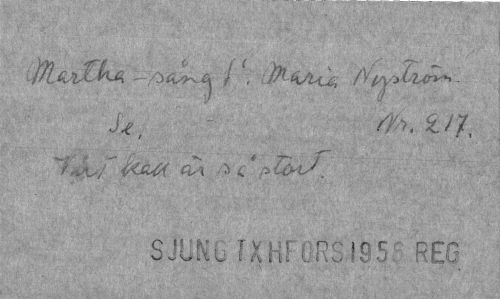 Martha-sång f. Maria Nyström.
Se, Nr. 217.
Vårt kall är så stort.
SJUNG IXHFORS1956 REG